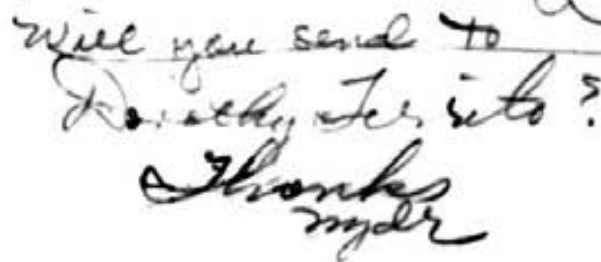 Will you send to
Dorothy Territo?
Thanks
mjdr